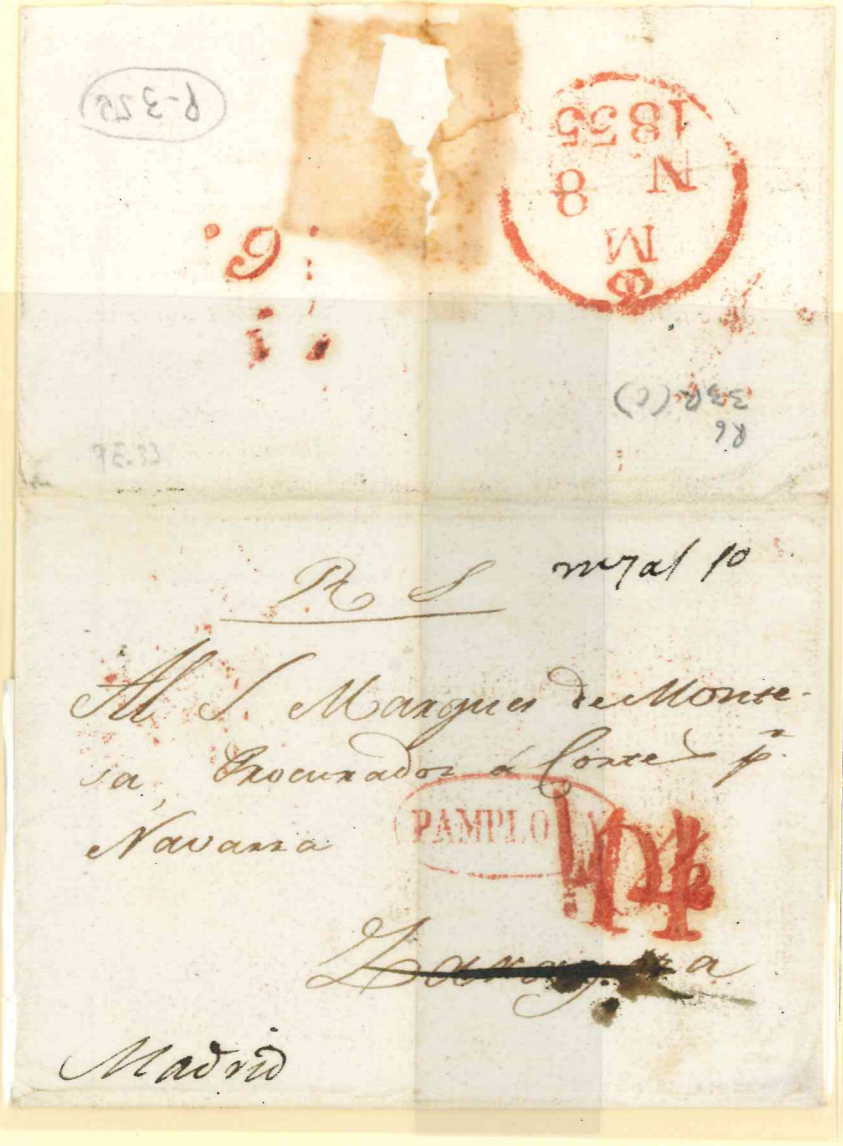 P-325
1835
N 8
M
6.
33R-(C)
R6
P.E.33
R S
Al S. Marques de Monte-
sa, Procurador á Cortes pr.
Navarra
PAMPLONA
Zaragoza
Madrid